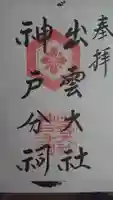 奉拝
出雲大社
神戸分祠